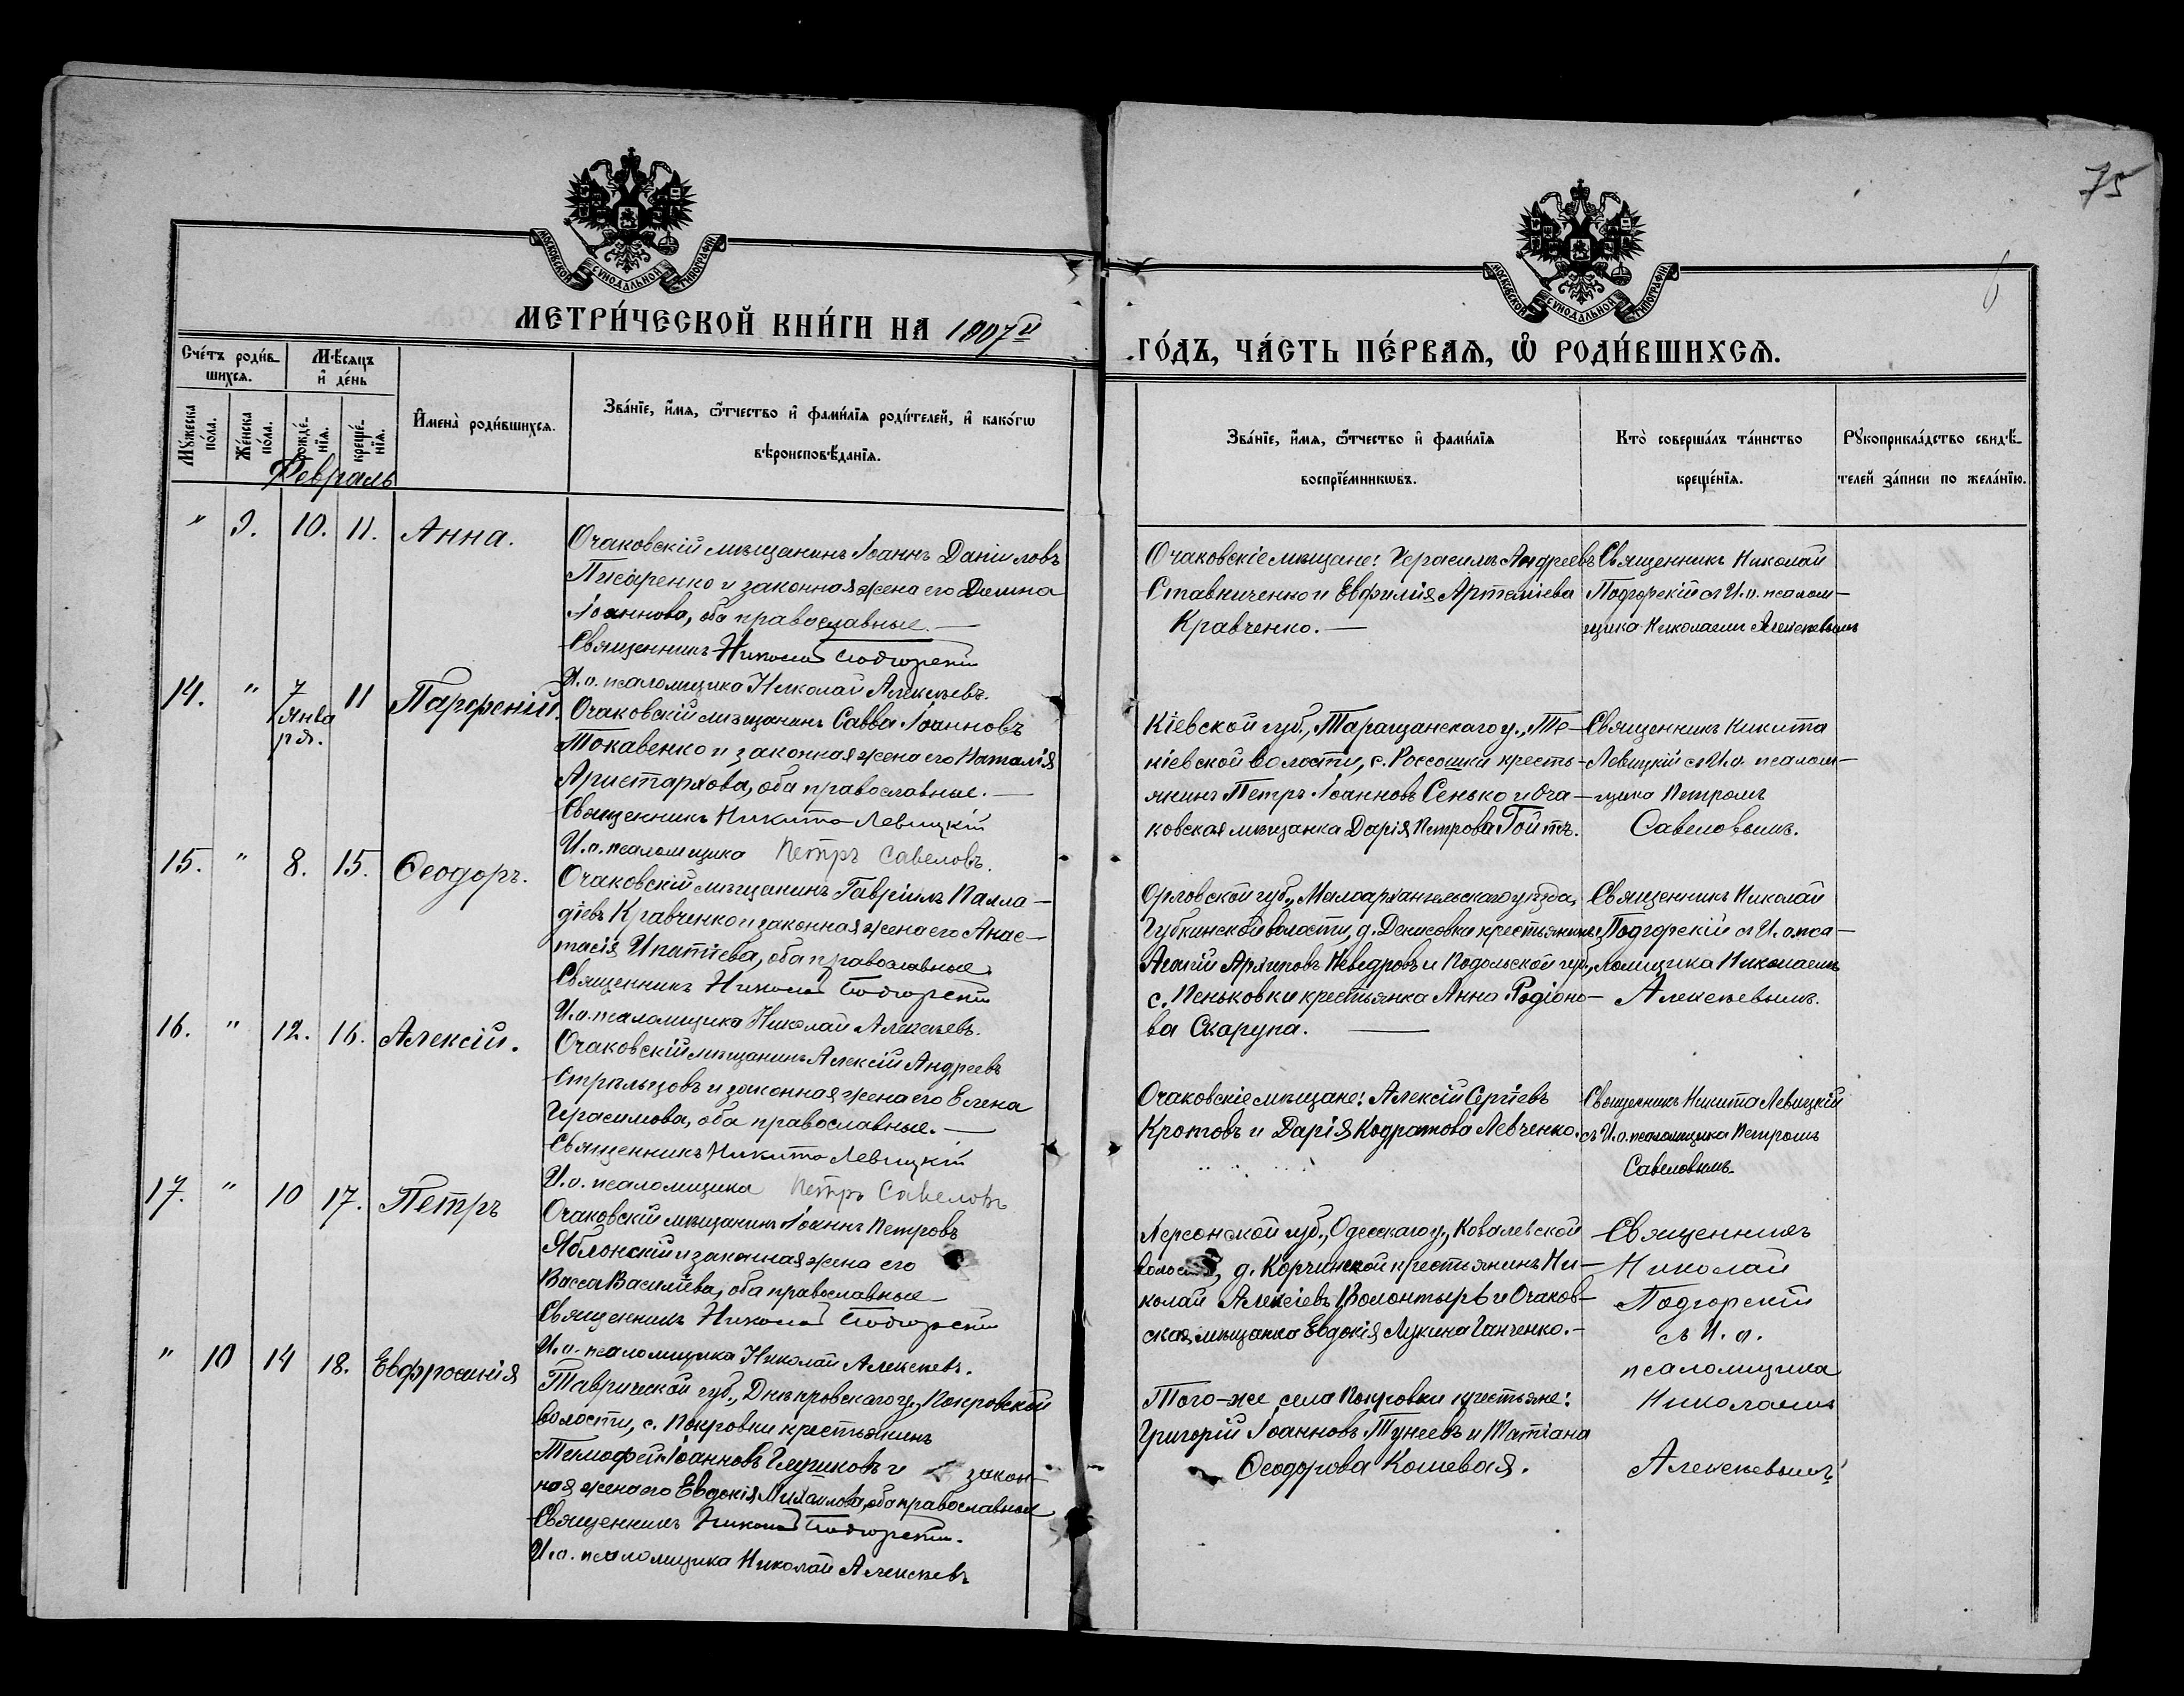 75
6
МОСКОВСКОЙ СѴНОДАЛЬНОЙ ТИПОГРАФІИ
МОСКОВСКОЙ СѴНОДАЛЬНОЙ ТИПОГРАФІИ
МЕТРИ́ЧЕСКОЙ КНИ́ГИ НА 1907й
ГО́ДЪ, ЧА́СТЬ ПЕ́РВАѦ, Ѡ҆ РОДИ́ВШИХСѦ.
Сче́тъ роди́в-
шихсѧ.
Мѣ́сѧцъ
и҆ де́нь
Мꙋ́жеска по́ла.
Же́нска по́ла.
рожде́-
нїѧ.
креще́-
нїѧ.
И҆мена̀ роди́вшихсѧ.
Зва́нїе, и҆́мѧ, ѻ҆́тчество и҆ фами́лїѧ роди́телей, и҆ како́гѡ
вѣроисповѣ́данїѧ.
Зва́нїе, и҆́мѧ, ѻ҆́тчество и҆ фами́лїѧ
воспрїе́мникѡвъ.
Кто̀ соверша́лъ та́инство
креще́нїѧ.
Рꙋкоприкла́дство свидѣ́-
телей за́писи по жела́нїю.
Февраль
" 9. 10. 11. Анна.
Очаковскій мѣщанинъ Іоаннъ Даніиловъ
Писаренко и законная жена его Домна
Іоаннова, оба православные.—
Священникъ Николай Подгорскій
И. о. псаломщика Николай Алексѣевъ.
Очаковскіе мѣщане: Герасимъ Андреевъ
Ставниченко и Евфимія Артеміева
Кравченко.—
Священникъ Николай
Подгорскій съ И. о. псалом-
щика Николаемъ Алексѣевымъ
14. " 7 Янва 11 Парфеній.
ря.
Очаковскій мѣщанинъ Савва Іоанновъ
Токавенко и законная жена его Наталія
Аристархова, оба православные.—
Священникъ Никита Левицкій
И. о. псаломщика Петръ Савеловъ.
Кіевской губ., Таращанскаго у., Те-
кіевской волости, с. Россошки кресть-
янинъ Петръ Іоанновъ Сенько и Оча-
ковская мѣщанка Дарія Петрова Гойтъ.
Священникъ Никита
Левицкій съ И. о. псалом-
щика Петромъ
Савеловымъ.
15. " 8. 15. Ѳеодоръ.
Очаковскій мѣщанинъ Гавріилъ Палла-
діевъ Кравченко и законная жена его Анас-
тасія Ипатіева, оба православные
Священникъ Николай Подгорскій
И. о. псаломщика Николай Алексѣевъ.
Орловской губ., Малоархангельскаго уѣзда,
Губкинской волости, д. Денисовки крестьянинъ
Агапій Архиповъ Неведровъ и Подольской губ.,
с. Пеньковки крестьянка Анна Родіоно-
ва Скарупа.—
Священникъ Николай
Подгорскій съ И. о. пса-
ломщика Николаемъ
Алексѣевымъ.
16. " 12. 16. Алексій.
Очаковскій мѣщанинъ Алексій Андреевъ
Стрѣльцовъ и законная жена его Елена
Герасимова, оба православные.—
Священникъ Никита Левицкій
И. о. псаломщика Петръ Савеловъ
Очаковскіе мѣщане: Алексій Сергіевъ
Кротовъ и Дарія Кодратова Левченко.
Священникъ Никита Левицкій
съ И. о. псаломщика Петромъ
Савеловымъ.
17. " 10 17. Петръ
Очаковскій мѣщанинъ Іоаннъ Петровъ
Яблонскій и законная жена его
Васса Василіева, оба православные
Священникъ Николай Подгорскій
И. о. псаломщика Николай Алексѣевъ.
Херсонской губ., Одесскаго у., Ковалевской
волости, д. Корчинской крестьянинъ Ни-
колай Алексіевъ Волонтырь и Очаков-
ская мѣщанка Евдокія Лукина Ганченко.-
Священникъ
Николай
Подгорскій
съ И. о.
псаломщика
Николаемъ
Алексѣевымъ
" 10 14 18. Евфросинія
Таврической губ., Днѣпровскаго у., Покровской
волости, с. Покровки крестьянинъ
Тимофей Іоанновъ Глуриковъ и закон-
ная жена его Евдокія Михаилова, оба православные
Священникъ Николай Подгорскій.
И. о. псаломщика Николай Алексѣевъ
Того-же села Покровки крестьяне:
Григорій Іоанновъ Тунеевъ и Татіана
Ѳеодорова Кошевая.